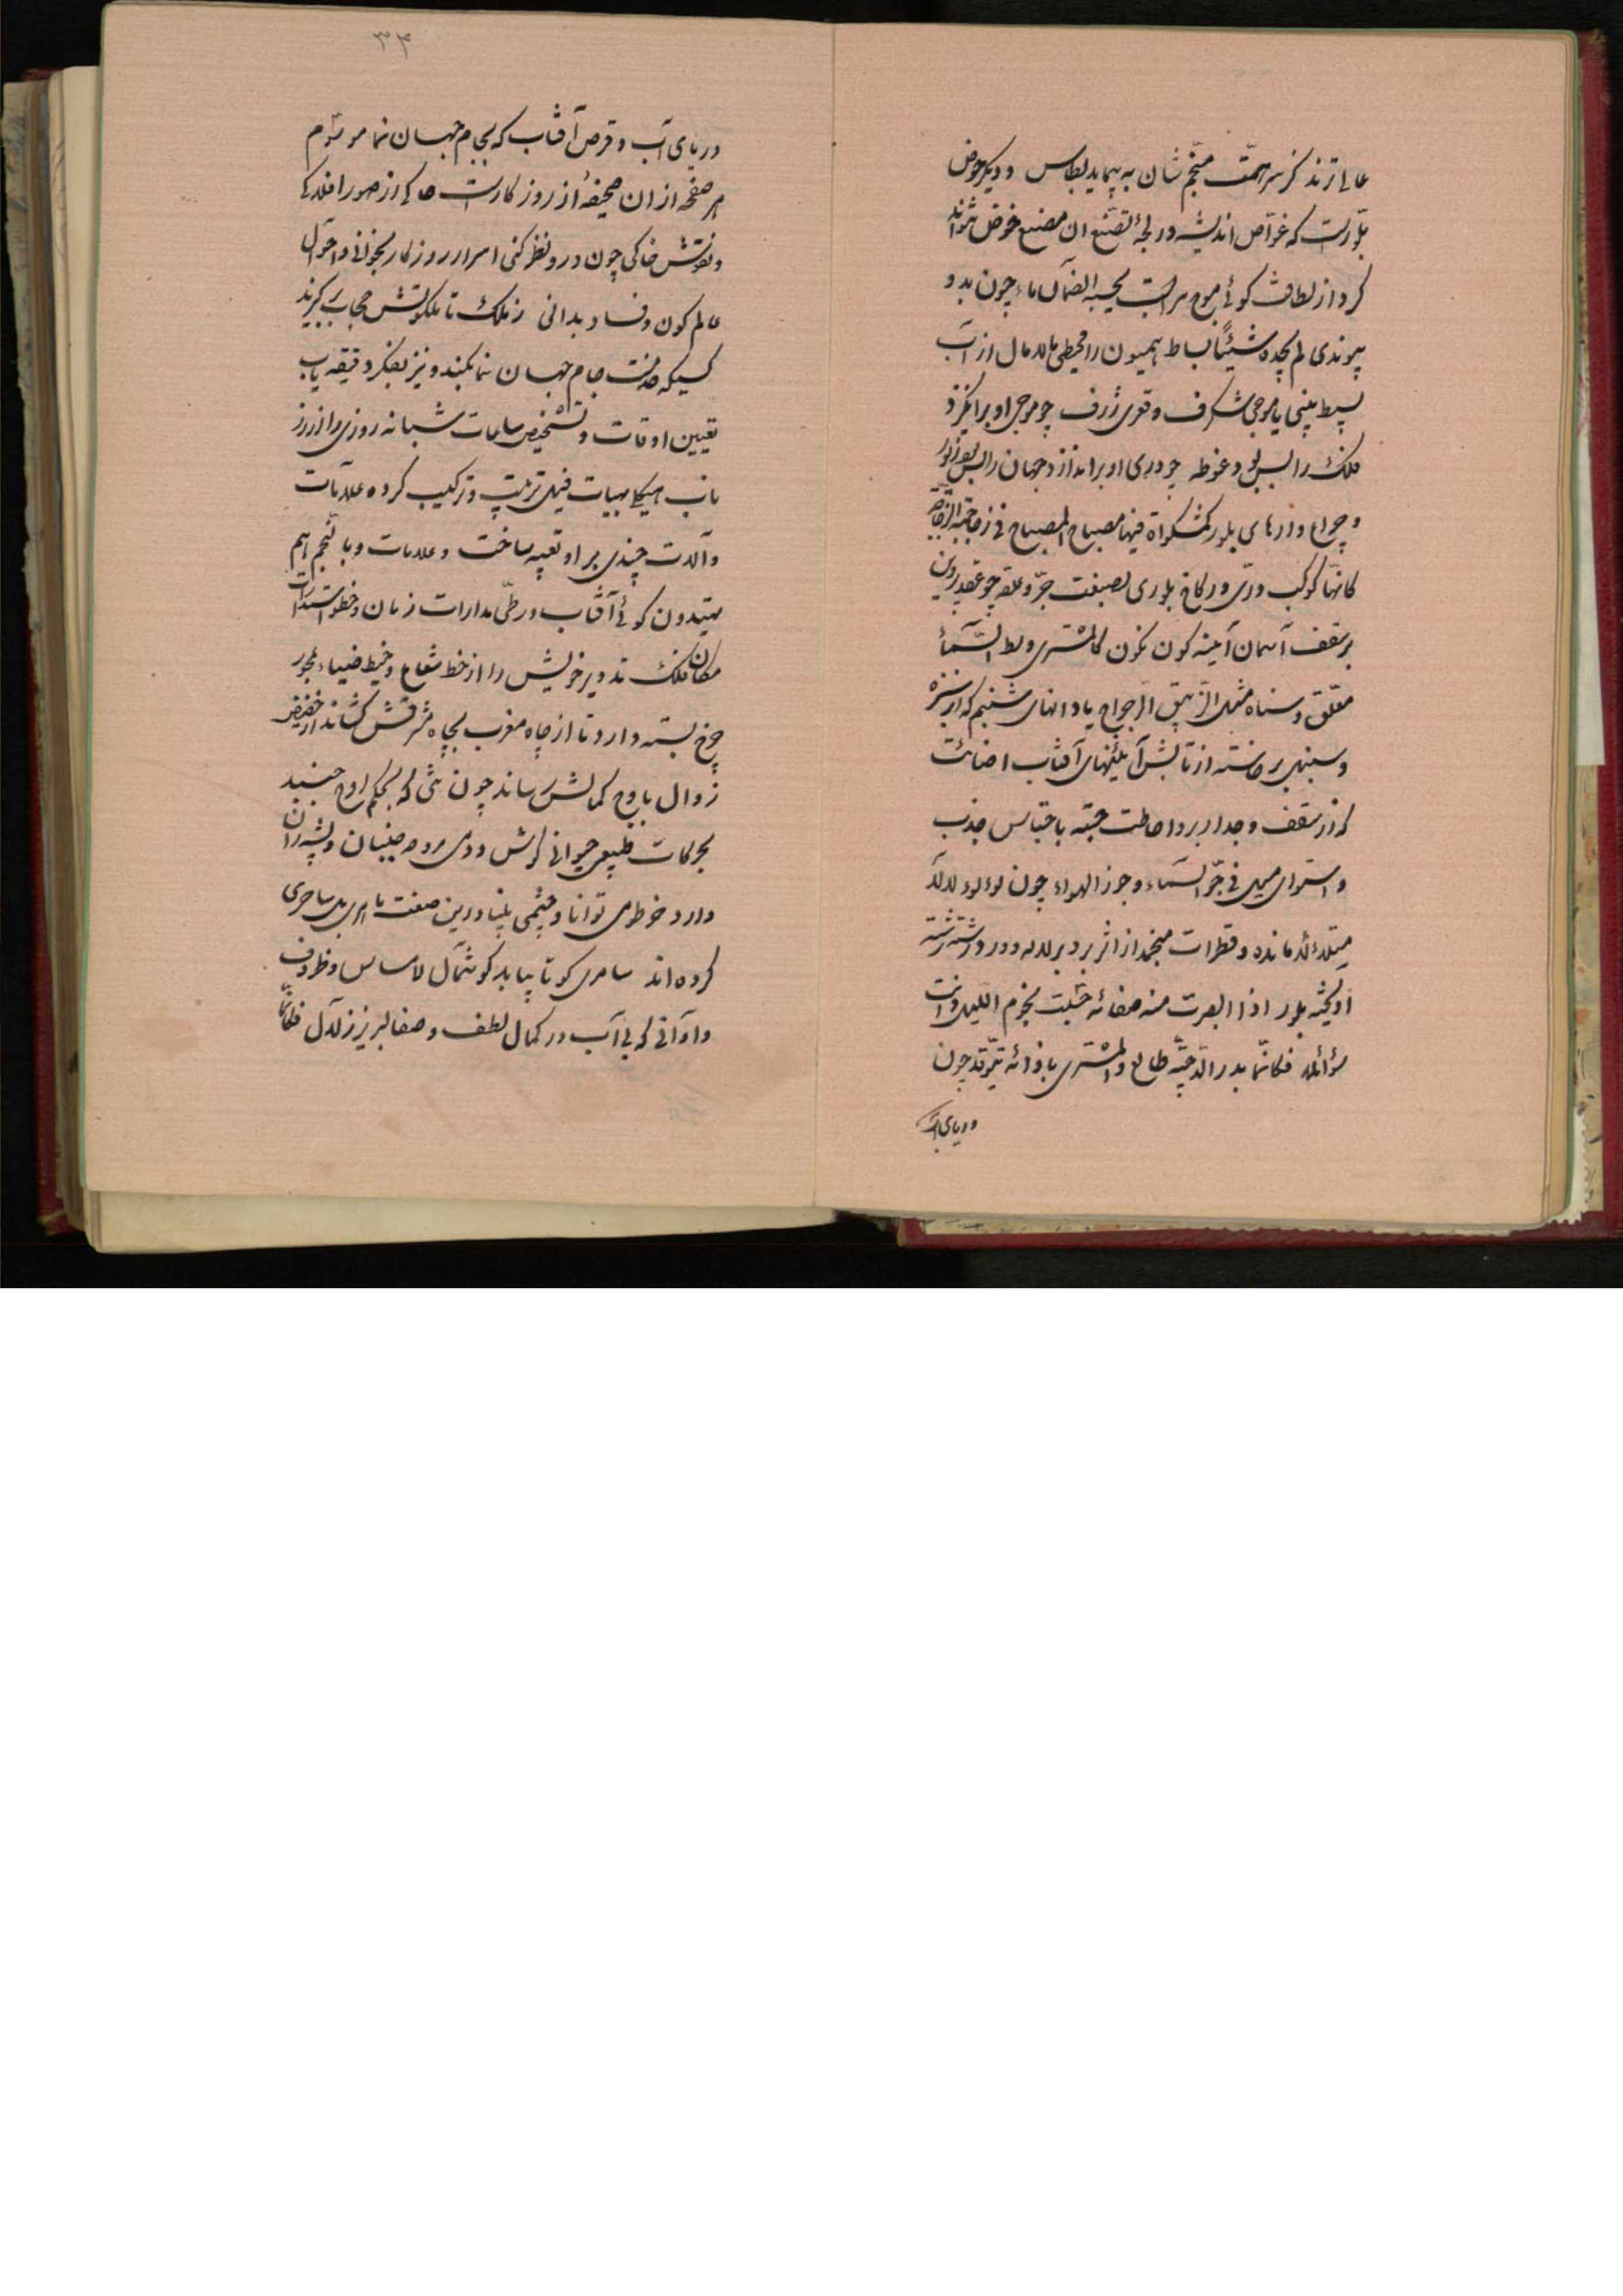 عالی ترند کز سر همت منجم شان به پیماید بطاس و دیگر حوض
بلورست که غواص اندیشه در لجهٔ تصنع آن مصنع خوض نتواند
کرد از لطافت گوئی موج سرابست یحسبه الظمآن ماء چون بدو
پیوندی لم یجده شیئًا بساط هیمون را محیطی مالامال از آب
بسیط بینی یا موجی شگرف و قعری ژرف چو موج او برانگیزد
فلک را بسپرد غوطه چو دری او براندازد جهان را
و چراغ دارهای بلور کمشکواة فیها مصباح المصباح فی زجاجة الزجاجة
کانها کوکب دری در کاخ بلوری بصنعت جر و علقه چو عقد پروین
بر سقف آسمان آینه گون نگون کالمشتری وسط السماء
معلق و سناه مثل الزیبق الرجراج یا دانهای شبنم که از سبزه
و سنبل برخاسته از تابش آیینهای آفتاب اضائت
که از سقف و جدار بر و احاطت جسته باقتباس جذب
و استوای میل فی جو السماء و جوز الهواء چون لؤلؤء لالا
متلالأ مانده و قطرات منجمد از اثر برد بر لاله و ورد رشته رشته
آویخته بلور اذا ابصرت منه صفائه حسبت نجوم اللیل دانت
سوائله فکانما بدر الدجیة طالع والمشتری بازائه یتوقد چون
دریای آب
۳۴
دریای آب و قرص آفتاب که بجام جهان نما موسوم
هر صفحه از آن صحیفهٔ از روزگارست حاکی از صور افلاکی
و نقوش خاکی چون در و نظر کنی اسرار روزگار بخوانی و احوال
عالم کون و فساد بدانی ز ملک تا ملکوتش حجاب برگیرند
کسیکه خدمت جام جهان نما بکند و نیز بفکر دقیقه یاب
تعیین اوقات و تشخیص ساعات شبانه روزی را از رز
ناب هیکل بهیات فیل ترتیب و ترکیب کرده علامات
و آلات چندی بر او تعبیه ساخت و علامات و بالنجم هم
یهتدون گوئی آفتاب در طی مدارات زمان و خطو استدارات
مکان فلک تدویر خویش را از خط شعاع و خیط ضیاء بمحور
چرخ بسته دارد تا از چاه مغرب بچاه مشرقش کشاند از حضیض
زوال باوج کمالش رساند چون شئ که بحکم ارج جنبد
بحرکات طبیعی حیوانی گوش و دمی مروحه جنبان و پشه ران
دارد خرطومی توانا و چشمی بینا درین صنعت سامری بل ساحری
کرده اند سامری کو تا بیابد گوشمال لامساس و ظروف
و اوانی که بی آب در کمال لطف و صفا لبریز زلال فکانما